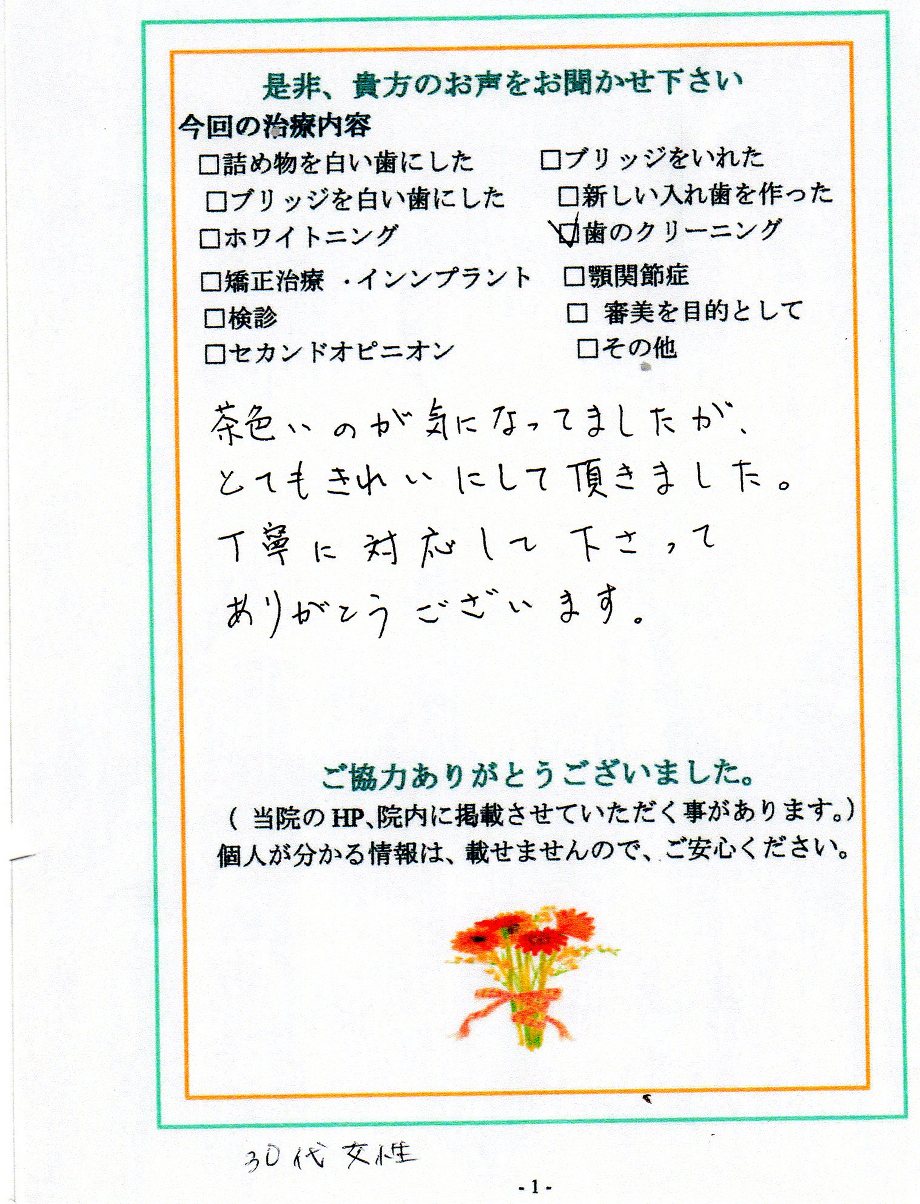 是非、貴方のお声をお聞かせ下さい
今回の治療内容
□詰め物を白い歯にした □ブリッジをいれた
□ブリッジを白い歯にした □新しい入れ歯を作った
□ホワイトニング ☑歯のクリーニング
□矯正治療 ・インンプラント □顎関節症
□検診 □ 審美を目的として
□セカンドオピニオン □その他
茶色いのが気になってましたが、
とてもきれいにして頂きました。
丁寧に対応して下さって
ありがとうございます。
ご協力ありがとうございました。
( 当院のHP、院内に掲載させていただく事があります。)
個人が分かる情報は、載せませんので、ご安心ください。
30代女性
- 1 -